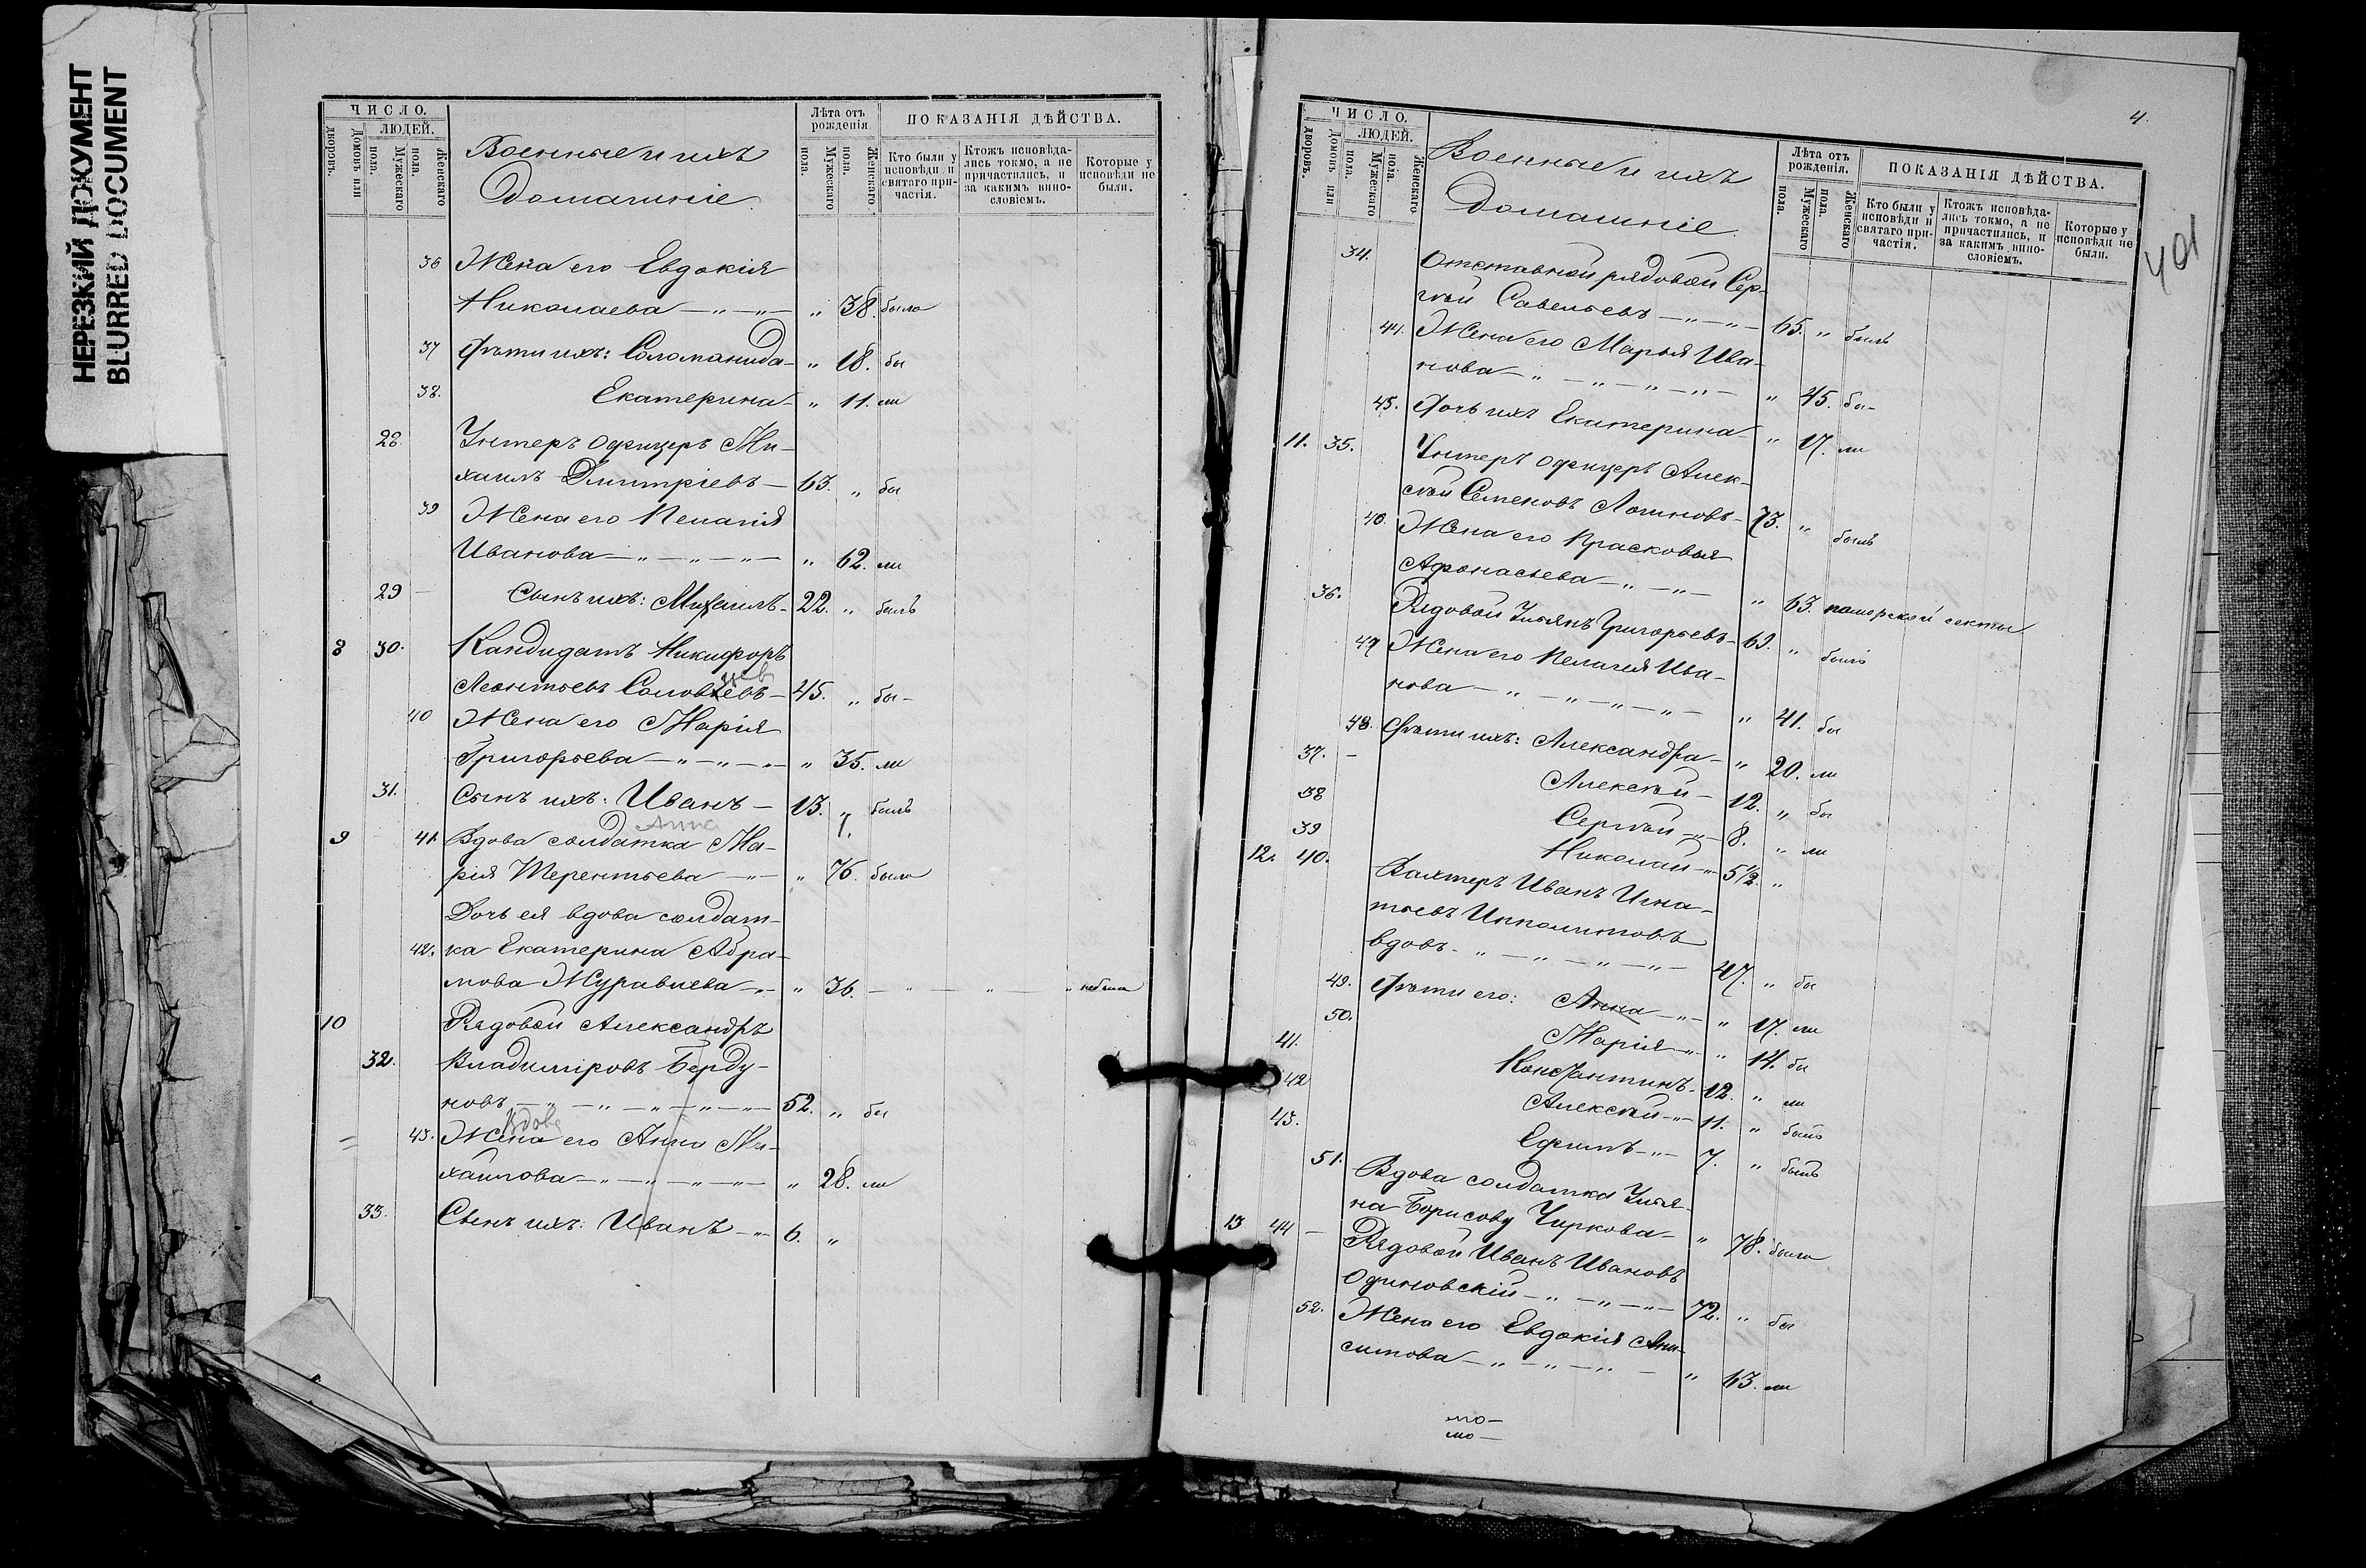 НЕРЕЗКИЙ ДОКУМЕНТ
BLURRED DOCUMENT
ЧИСЛО.
ЛЮДЕЙ.
дворовъ.
Домовъ или
Мужескаго пола.
Женскаго пола.
Военные и ихъ
Домашніе.
Лѣта отъ рожденія
Мужескаго пола.
Женскаго пола.
ПОКАЗАНІЯ ДѢЙСТВА.
Кто были у исповѣди и святаго причастія.
Ктожъ исповѣдались токмо, а не причастились, и за какимъ винословіемъ.
Которые у исповѣди не были.
36 Жена его Евдокія
Николаева — " — " — " 38. была
37 Дѣти ихъ: Соломанида — " 18. бы
38. Екатерина — " 11. ли
28. Унтеръ офицеръ Ми-
хаилъ Дмитріевъ — 63. " бы
39 Жена его Пелагія
Иванова — " — " — " — " 62. ли
29 — Сынъ ихъ: Михаилъ — 22. " былъ
8 30. Кандидатъ Никифоръ
Леонтьевъ Соловьевъ — 45. " бы —
40 Жена его Марія
Григорьева — " — " — " — " 35. ли
31. Сынъ ихъ: Иванъ — 13. " былъ
Анна 1.
9 41. Вдова солдатка Ма-
рія Терентьева — " — " 76. была
Дочь ея вдова солдат-
42. ка Екатерина Абра-
мова Журавлева — " — " 36. — " — " — " не была
10 Рядовой Александръ
32. Владиміровъ Берду-
новъ — " — " — " — " — " — 52. " бы
Вдова
43. Жена его Анна Ми-
хаилова — " — " — " — " — " 28. ли
33. Сынъ ихъ: Иванъ — " — 6. "
4.
401
ЧИСЛО.
ЛЮДЕЙ.
дворовъ.
Домовъ или
Мужескаго пола.
Женскаго пола.
Военные и ихъ
Домашніе.
Лѣта отъ рожденія.
Мужескаго пола.
Женскаго пола.
ПОКАЗАНІЯ ДѢЙСТВА.
Кто были у исповѣди и святаго причастія.
Ктожъ исповѣдались токмо, а не причастились, и за какимъ винословіемъ.
Которые у исповѣди не были.
34. Отставной рядовой Сер-
гѣй Савельевъ — " — " — 65. " былъ
44. Жена его Марья Ива-
нова — " — " — " — " — " 45. бы-
45. Дочь ихъ Екатерина — " 17. ли
11. 35. Унтеръ офицеръ Алек-
сѣй Семеновъ Логиновъ — 73. " былъ
46. Жена его Прасковья
Афонасьева — " — " — " 63. паморской секты
36. Рядовой Ульянъ Григорьевъ — 63. " былъ
47 Жена его Пелагея Ива-
нова — " — " — " — " — " 41. бы
48. Дѣти ихъ: Александра — " 20. ли
37. — Алексѣй — 12. " бы
38 Сергѣй — " — 8. " ли
39 Николай — " — 5 1/2. "
12. 40. Вахтеръ Иванъ Игна-
тьевъ Ипполитовъ
вдовъ — " — " — " — " — 47. " бы
49. Дѣти его: Анна — " — " 17. ли
50. Марія — " — " 14. бы
41. Константинъ — 12. " ли
42 Алексѣй — " — 11. " былъ
43. Ефимъ — " — 7. " былъ
51. Вдова солдатка Улья-
на Борисову Чиркова — " 78. была
13 44 — Рядовой Иванъ Ивановъ
Одиновскій — " — " — " — 72. " бы
52. Жена его Евдокія Ани-
симова — " — " — " — " 63. ли